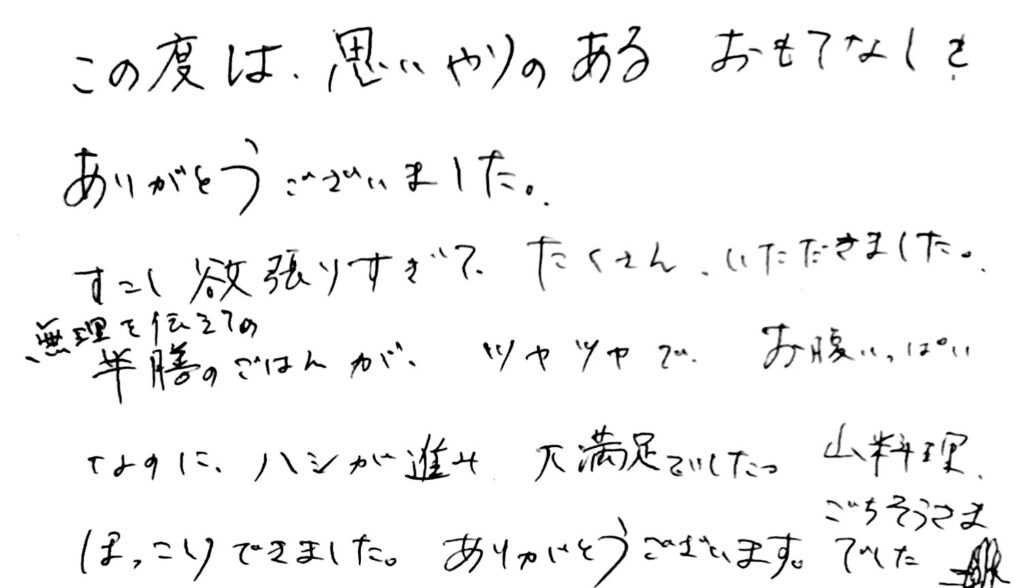 この度は、思いやりのある おもてなしを
ありがとうございました。
すこし欲張りすぎて、たくさん、いただきました。
無理を伝えての
半膳のごはんが、ツヤツヤで、お腹いっぱい
なのに、ハシが進み 大満足でした。山料理、
ほっこりできました。ありがとうございます。
ごちそうさま
でした